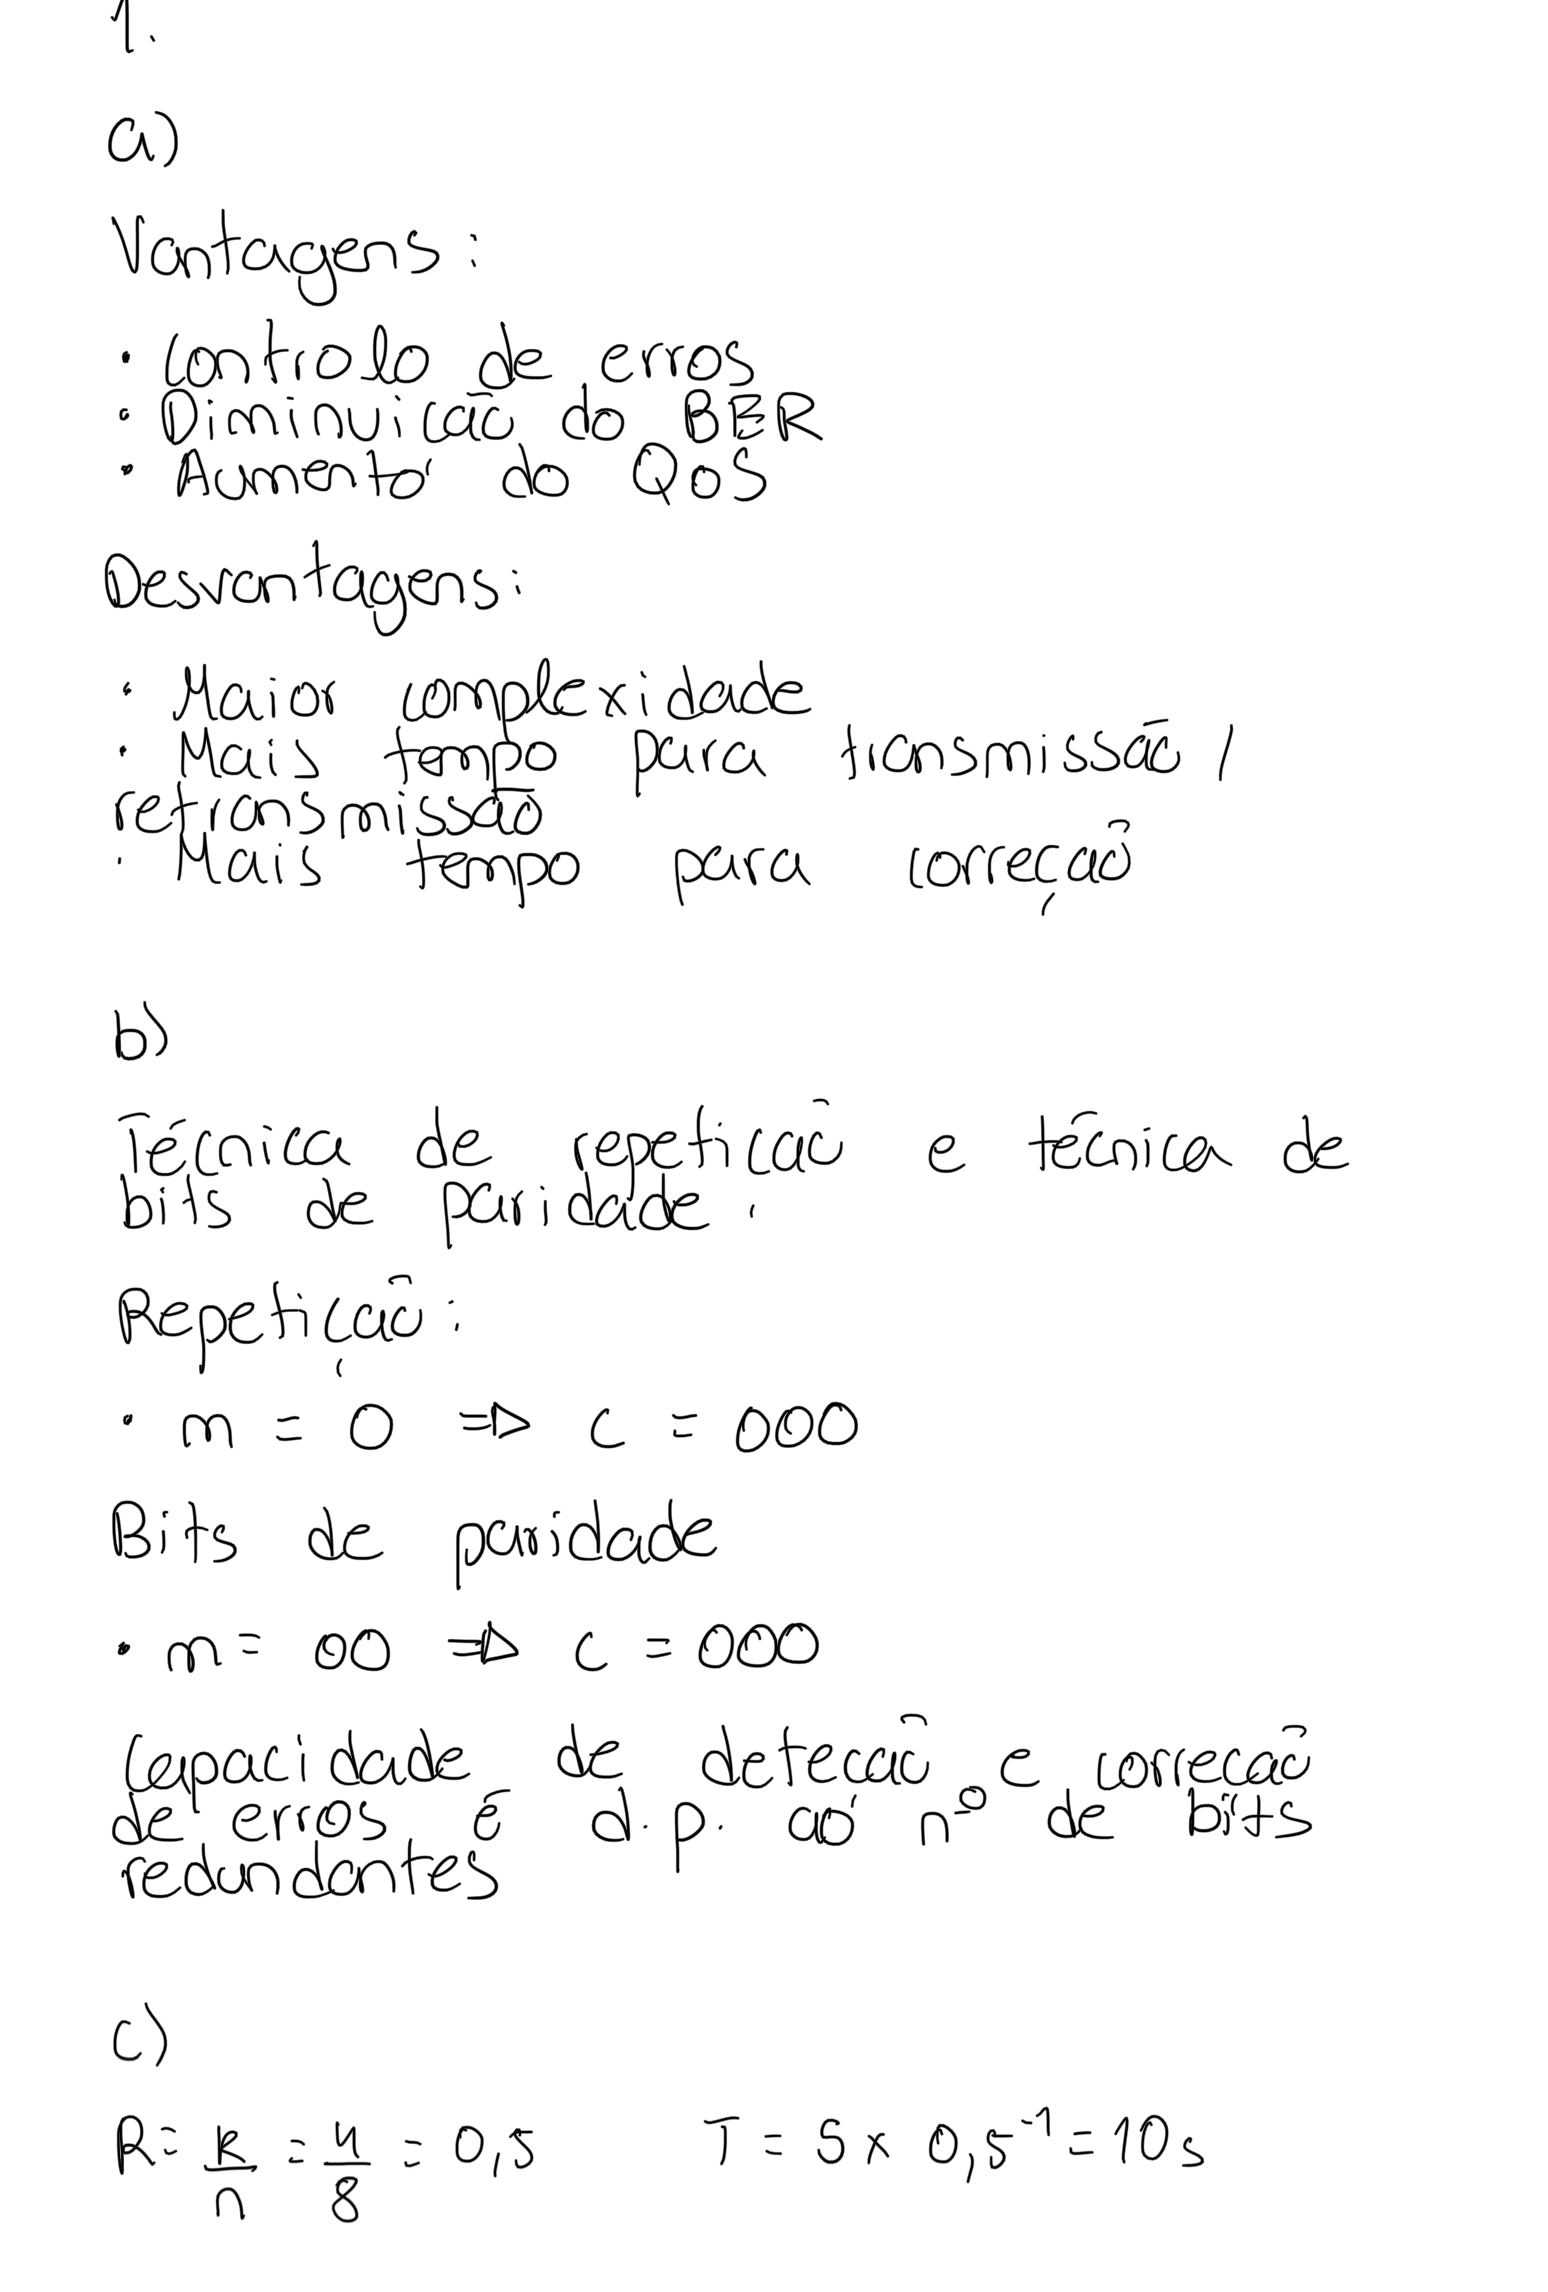 1.
a)
Vantagens:
• Controlo de erros
• Diminuição do BER
• Aumento do QoS
Desvantagens:
• Maior complexidade
• Mais tempo para transmissão /
retransmissão
• Mais tempo para correção
b)
Técnica de repetição e técnica de
bits de paridade.
Repetição:
• m = 0 ⇒ c = 000
Bits de paridade
• m = 00 ⇒ c = 000
Capacidade de deteção e correção
de erros é d.p. ao nº de bits
redundantes
c)
R = k/n = 4/8 = 0,5 T = 5 x 0,5⁻¹ = 10 s